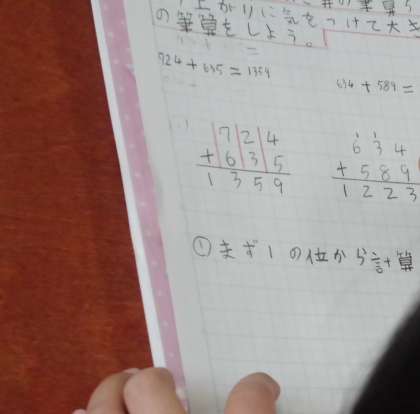 上がりに気をつけて大き
の筆算をしよう。
724+635=1359
634+589=
724
+635
1359
634
+589
1223
①まず1の位から計算